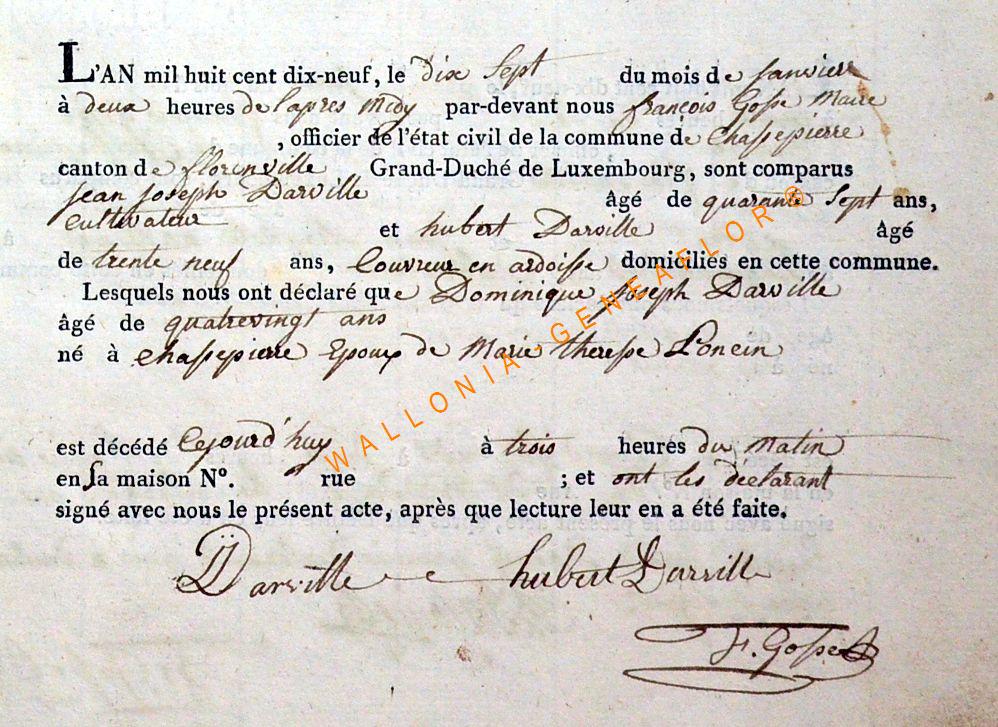 L'AN mil huit cent dix-neuf, le dix Sept du mois de Janvier
à deux heures de l'apres Midy par-devant nous françois Gosse Maire
, officier de l'état civil de la commune de Chassepierre
canton de florenville Grand-Duché de Luxembourg, sont comparus
jean joseph Darville âgé de quarante Sept ans,
Cultivateur et hubert Darville âgé
de trente neuf ans, Couvreur en ardoisse domiciliés en cette commune.
Lesquels nous ont déclaré que Dominique joseph Darville
âgé de quatrevingt ans
né à chassepierre Epoux de Marie theresse Poncin
est décédé Cejourd'huy à trois heures du Matin
en sa maison N°. rue ; et ont les déclarant
signé avec nous le présent acte, après que lecture leur en a été faite.
JJ Darville hubert Darville
F. Gosse
WALLONIA - GENEAFLOR ®